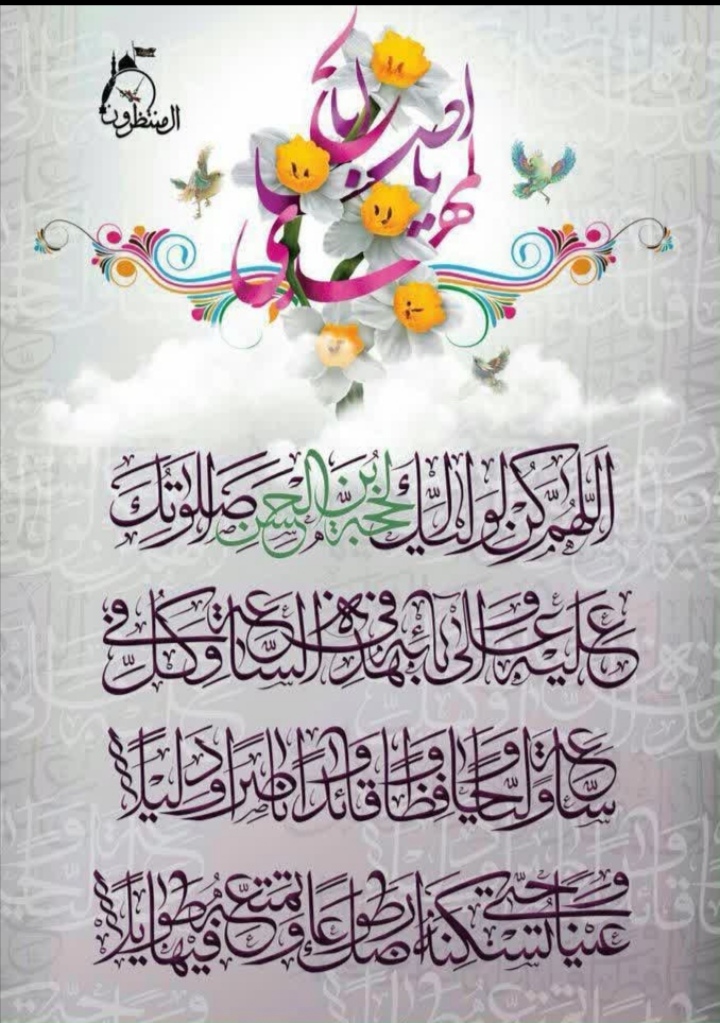 المنتظرون
یا اباصالح المهدی
اللهم كن لوليك الحجة بن الحسن صلواتك
عليه وعلى آبائه في هذه الساعة وفي كل
ساعة وليا وحافظا وقائدا وناصرا ودليلا
وعينا حتى تسكنه أرضك طوعا وتمتعه فيها طويلا